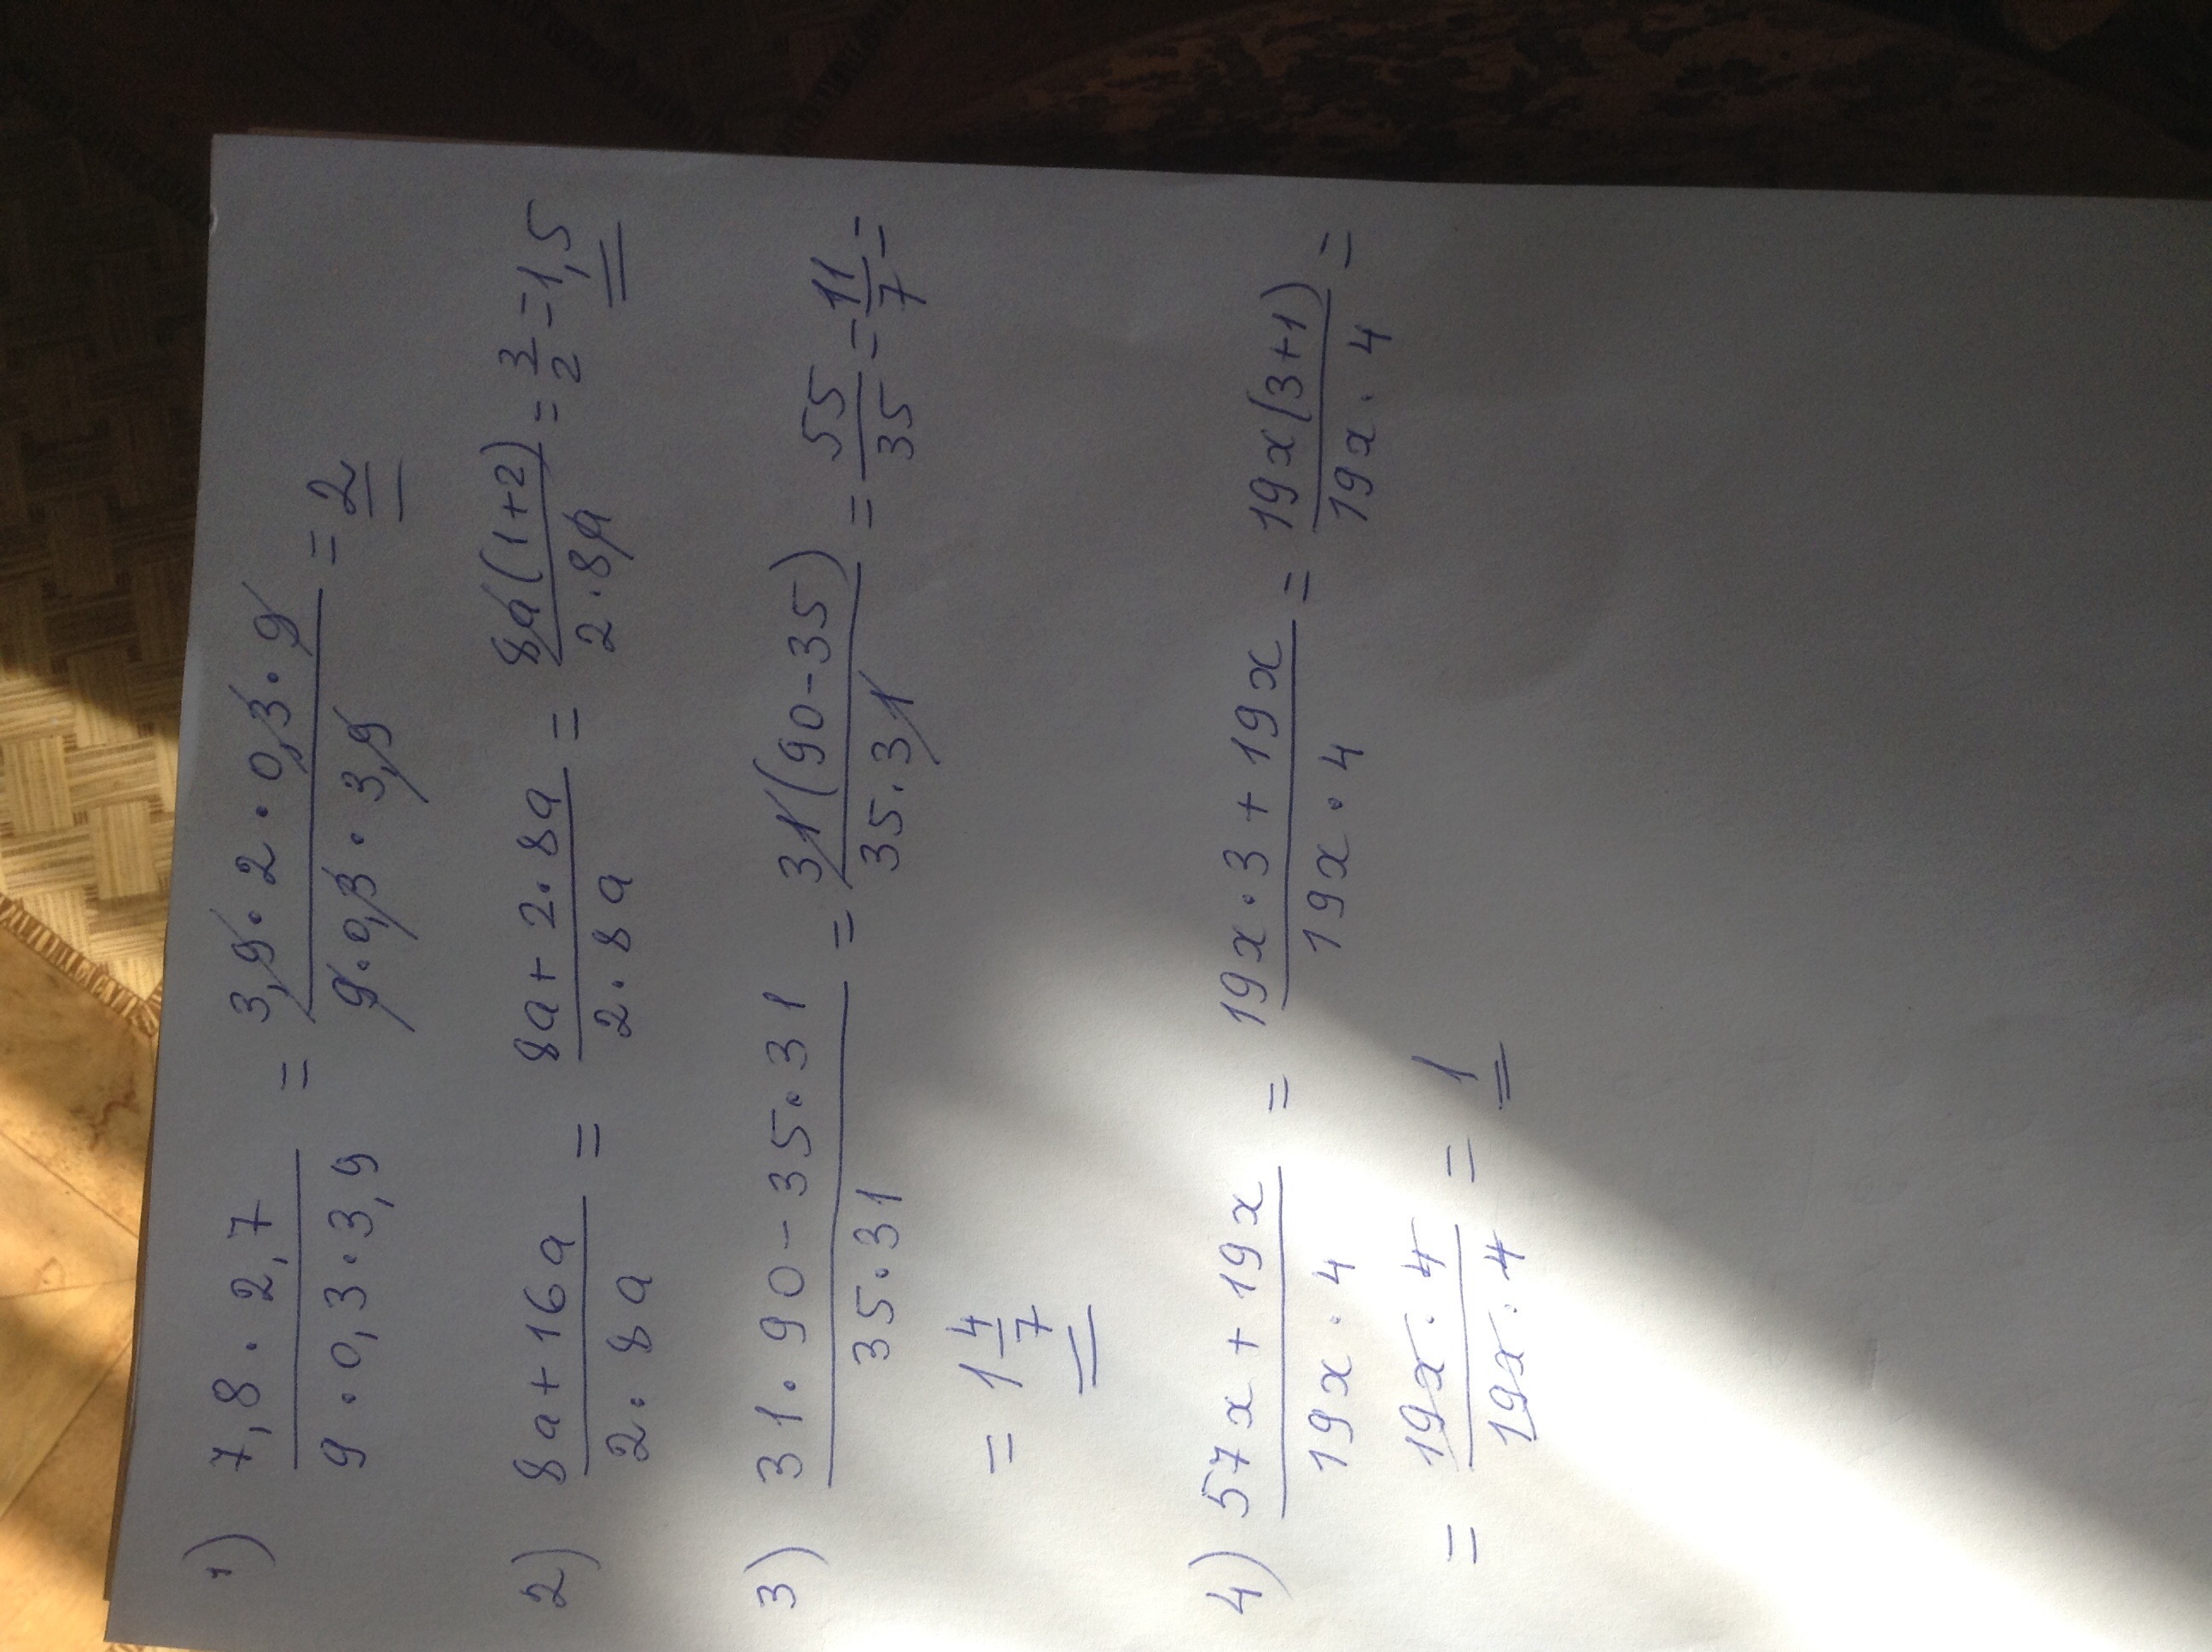 1) 7,8 · 2,7 / 9 · 0,3 · 3,9 = 3,9 · 2 · 0,3 · 9 / 9 · 0,3 · 3,9 = 2
2) 8a + 16a / 2 · 8a = 8a + 2 · 8a / 2 · 8a = 8a(1+2) / 2 · 8a = 3/2 = 1,5
3) 31 · 90 - 35 · 31 / 35 · 31 = 31(90-35) / 35 · 31 = 55/35 = 11/7 =
= 1 4/7
4) 57x + 19x / 19x · 4 = 19x · 3 + 19x / 19x · 4 = 19x(3+1) / 19x · 4 =
= 19x · 4 / 19x · 4 = 1